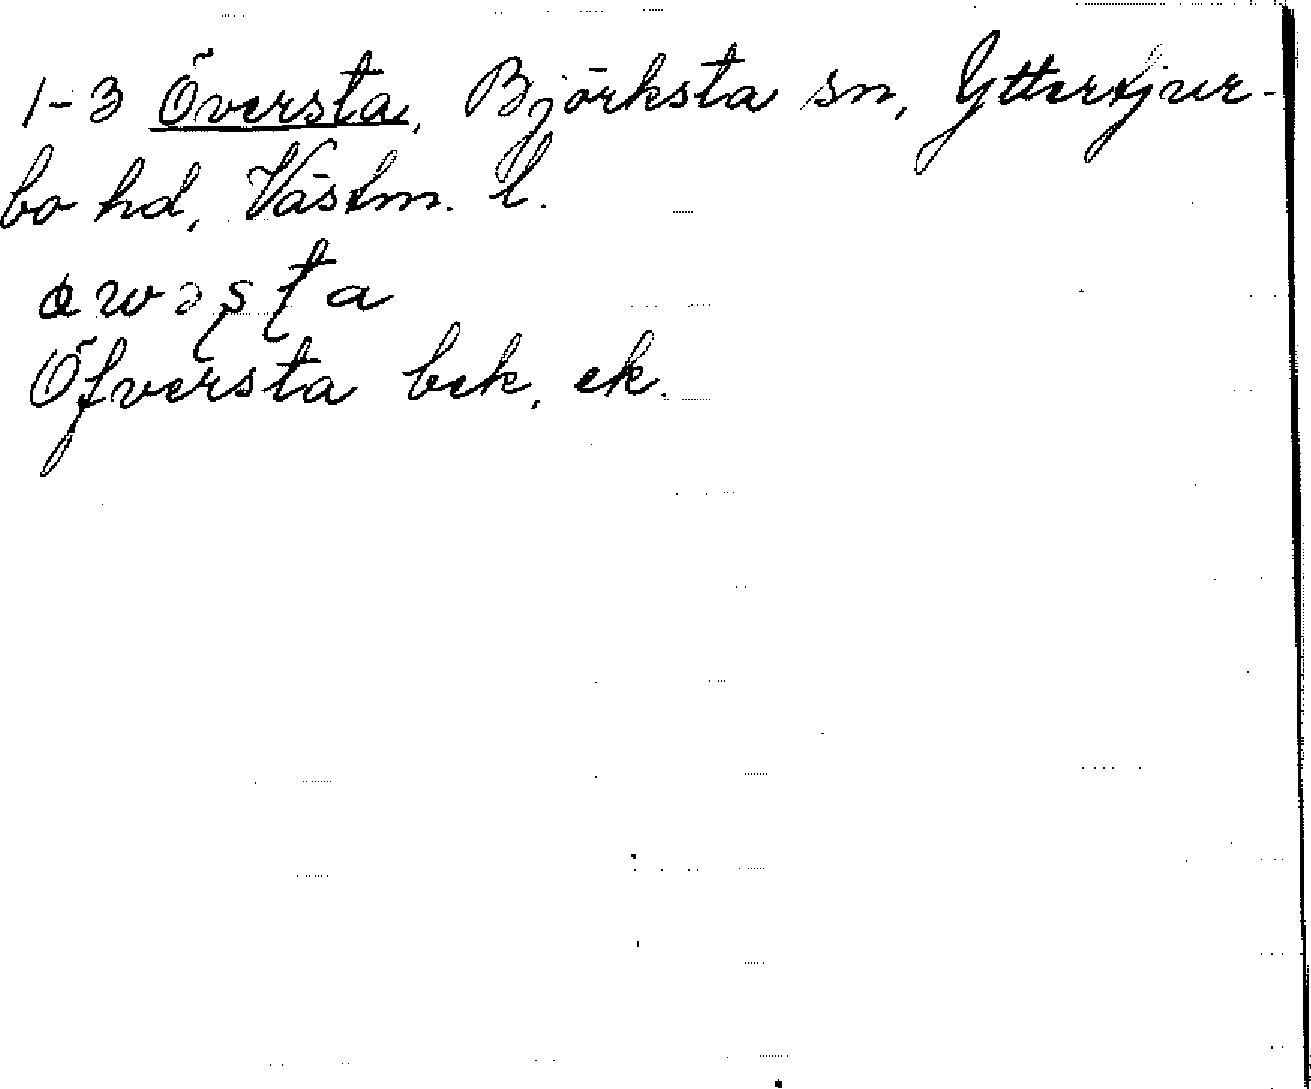 1-3 Översta, Björksta sn, Yttertjur-
bo hd, Västm. l.
ɵwəʂʈa
Öfversta bek, ek.